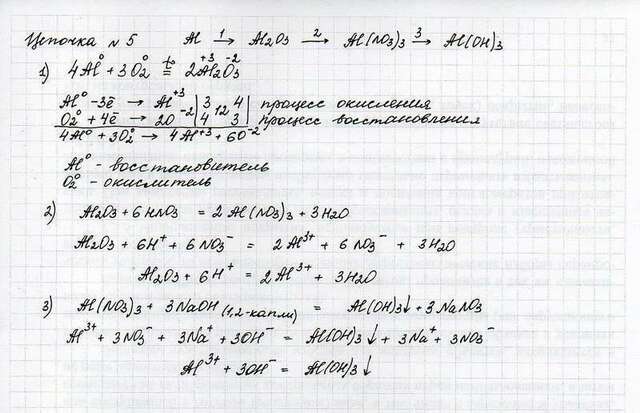 Цепочка № 5 Al 1→ Al2O3 2→ Al(NO3)3 3→ Al(OH)3
1) 4Al⁰ + 3O2⁰ t= 2Al2⁺³O3⁻²
Al⁰ -3ē → Al⁺³ | 3 | 12 | 4 | процесс окисления
O2⁰ + 4ē → 2O⁻² | 4 | 3 | процесс восстановления
4Al⁰ + 3O2⁰ → 4Al⁺³ + 6O⁻²
Al⁰ - восстановитель
O2⁰ - окислитель
2) Al2O3 + 6HNO3 = 2Al(NO3)3 + 3H2O
Al2O3 + 6H⁺ + 6NO3⁻ = 2Al³⁺ + 6NO3⁻ + 3H2O
Al2O3 + 6H⁺ = 2Al³⁺ + 3H2O
3) Al(NO3)3 + 3NaOH (1,2-капли) = Al(OH)3↓ + 3NaNO3
Al³⁺ + 3NO3⁻ + 3Na⁺ + 3OH⁻ = Al(OH)3↓ + 3Na⁺ + 3NO3⁻
Al³⁺ + 3OH⁻ = Al(OH)3↓